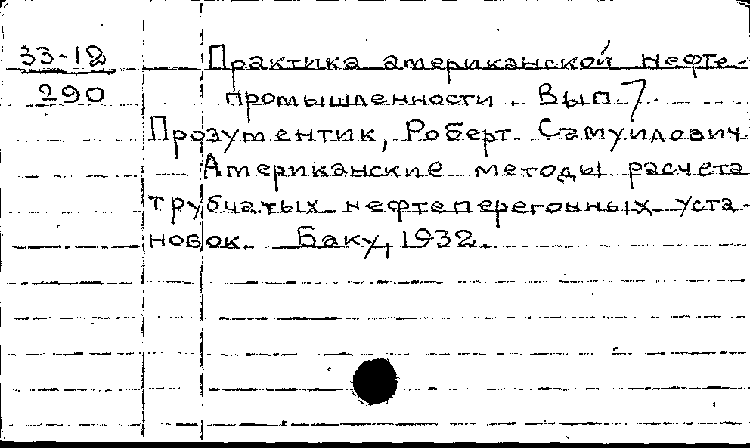 33-12
290
Практика американской нефте-
промышленности. Вып 7.
Прозументик, Роберт Самуилович
Американские методы расчета
трубчатых нефтеперегонных уста-
новок. Баку, 1932.